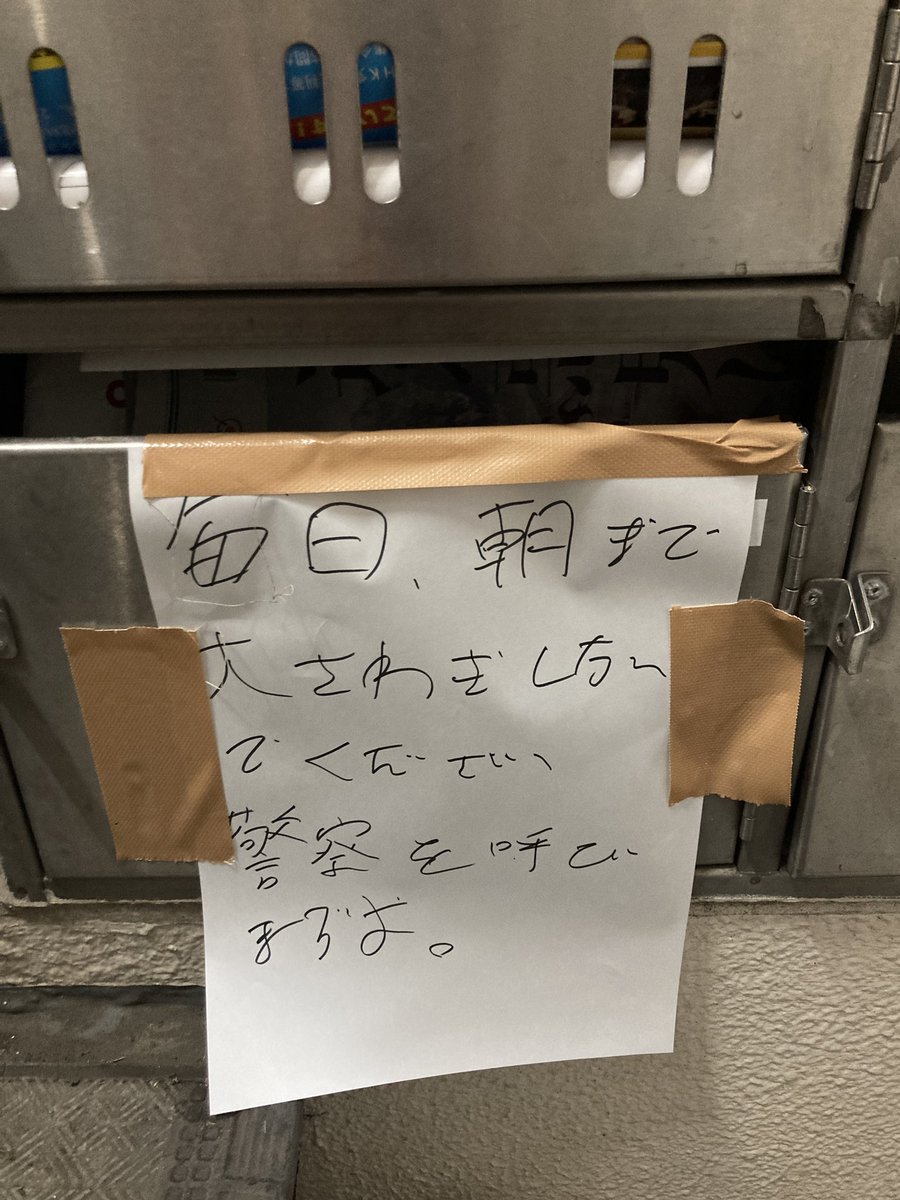 毎日、朝まで
大さわぎしない
でください
警察を呼び
ますよ。